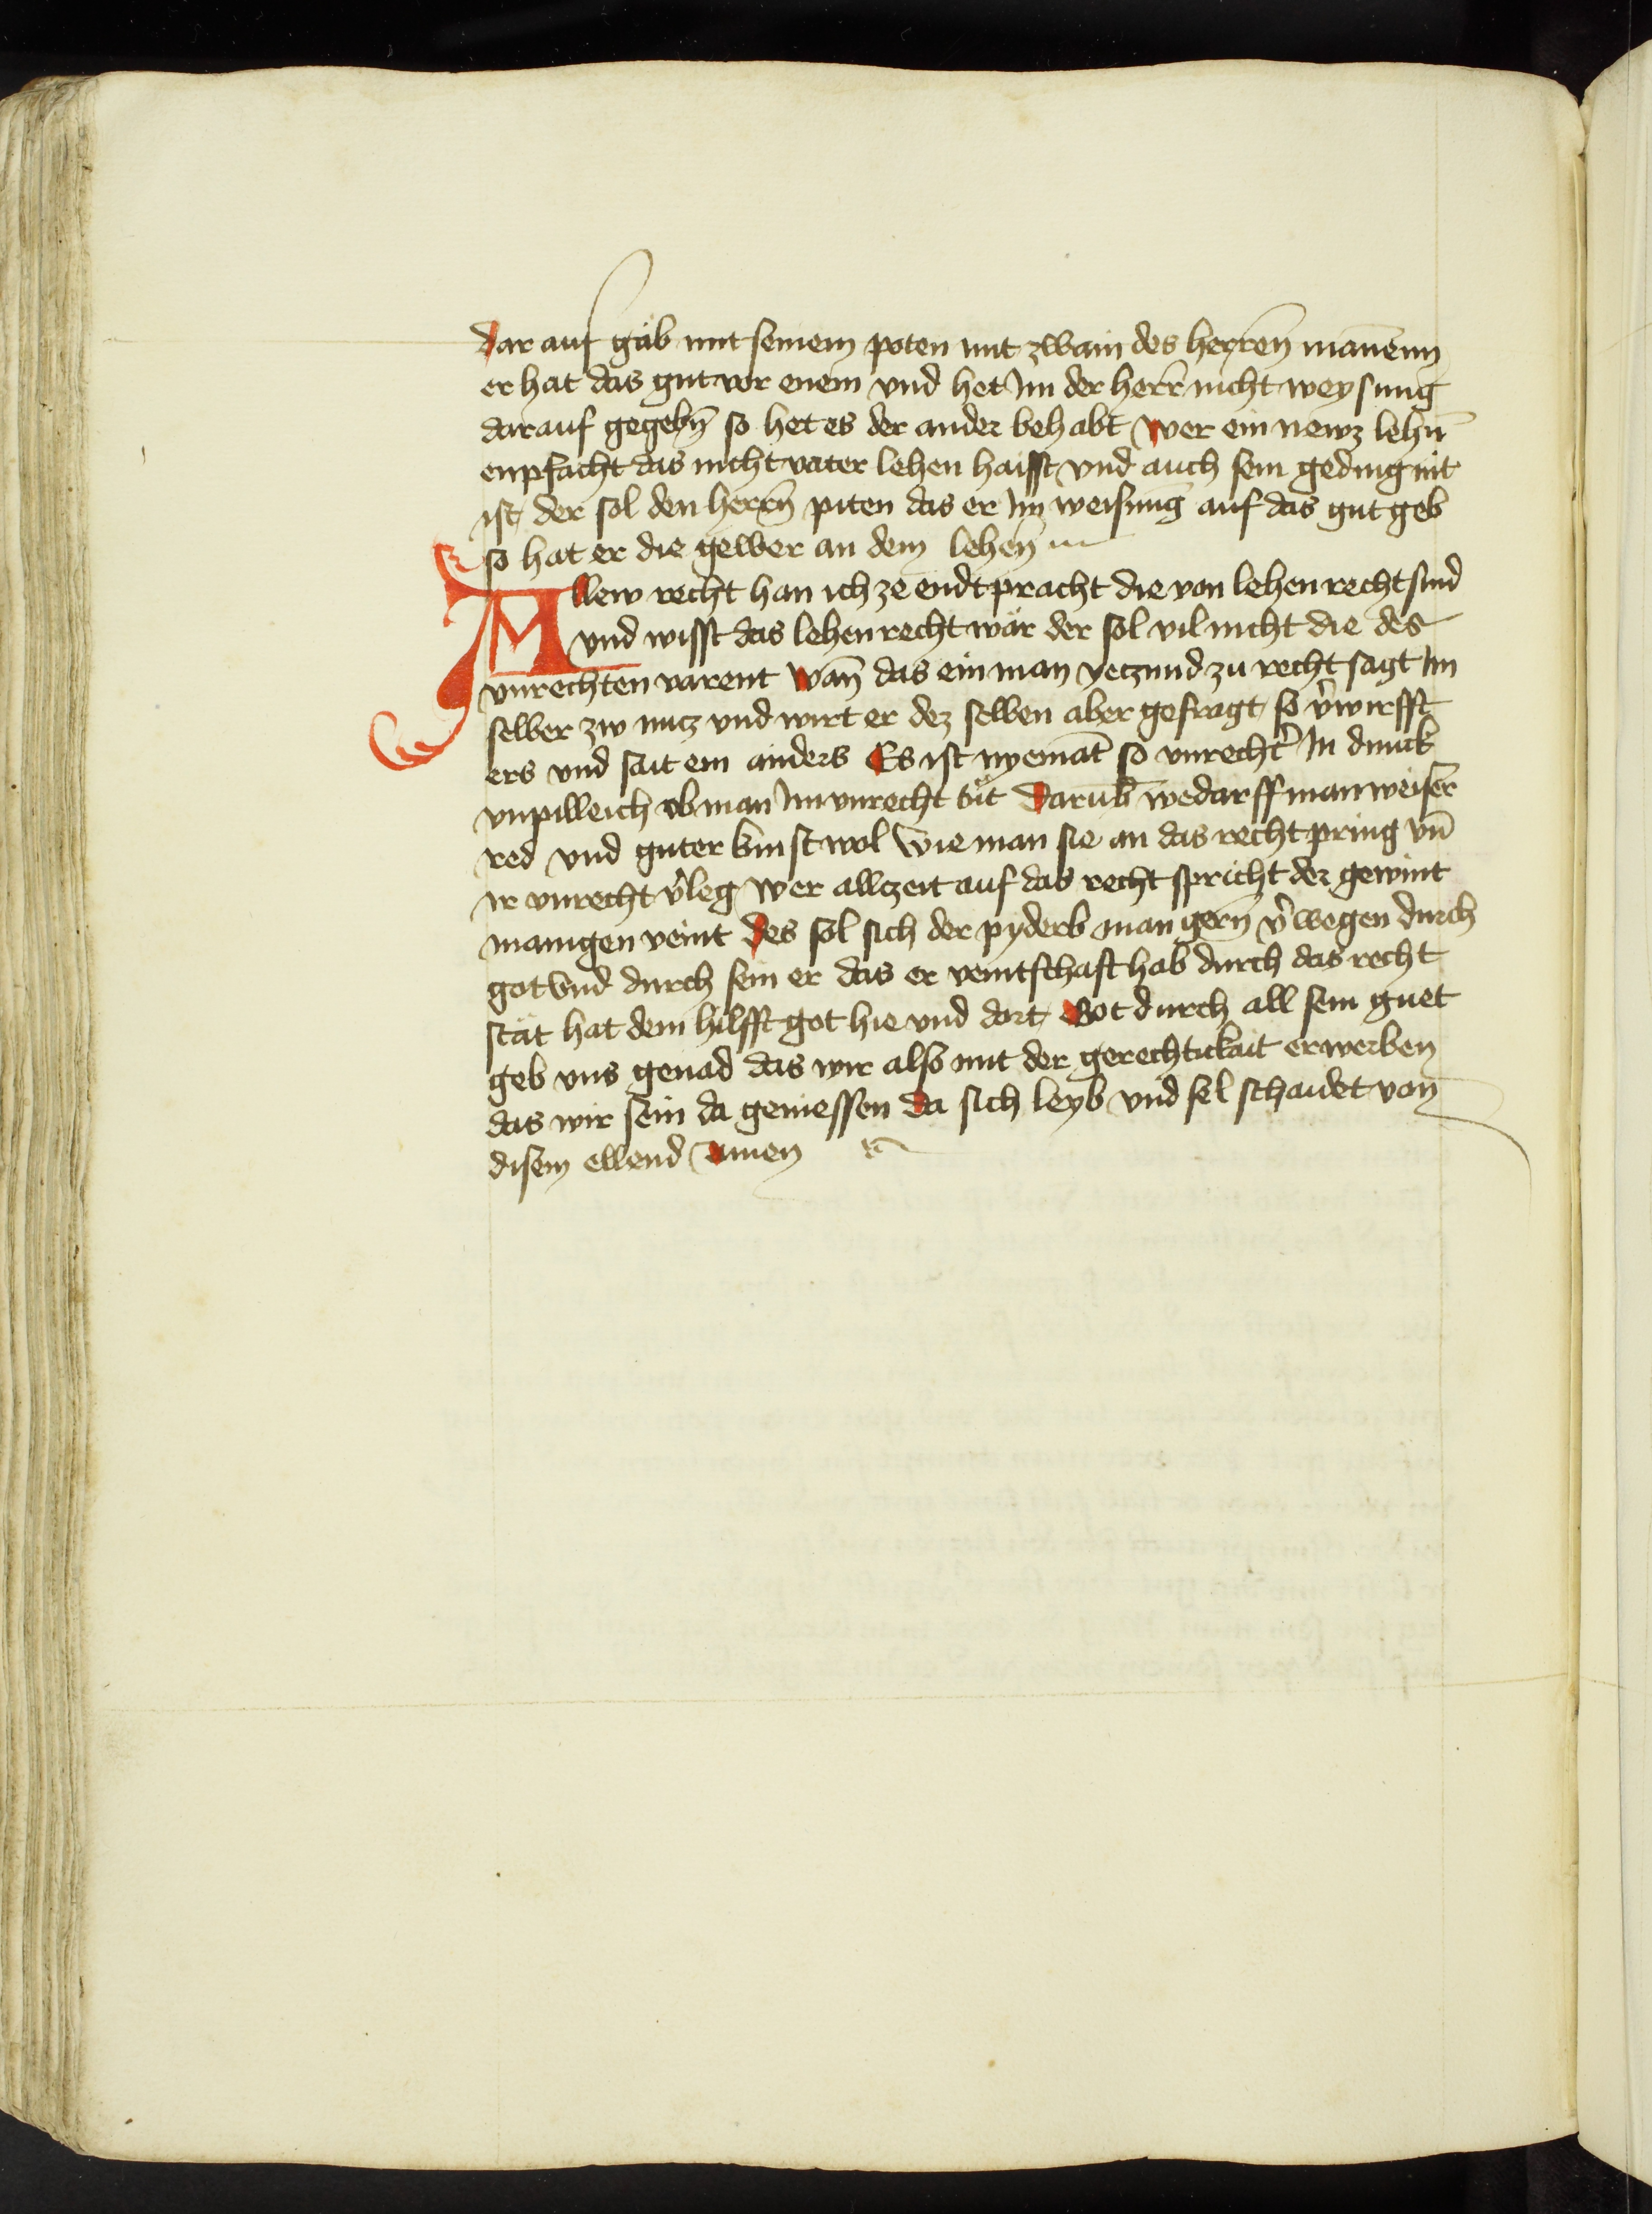 dar auf gäb mit seinem poten mit zwain des herren̄ man̄enn
er hat das gut vor enem vnd het Im der herr̄ nicht weysung
darauf gegebn̄ so het es der ander behabt Wer ein newz lehn̄
enpfacht das nicht vater lehen haisst vnd auch sein geding nit
ist der sol den herrn̄ piten das er Im weisung auf das gut geb
so hat er die gewer an dem lehen̄
Allew recht han ich ze endt pracht die von lehenrecht sind
vnd wisst das lehenrecht wär der sol vil nicht die des
vnrechten varent wan̄ das ein man yeczund zu recht sagt Im
selber zw nucz vnd wirt er dez selben aber gefragt so v̓wirfft
ers vnd sait ein anders Es ist nyemat̄ so vnrecht̓ In dunck
vnpilleich ob man Im vnrecht tüt Darumb̄ wedarff man weiser
red vnd guter kunst wol wie man sie an das recht pring vn̄
ir vnrecht v̓leg Wer allczeit auf das recht spricht der gewint
manigen veint Des sol sich der pyderb man gern̄ v̓wegen durch
got vnd durch sein er das er veintschaft hab durch das recht
stät hat dem hilfft got hie vnd dort Got durch all sein guet
geb vns genad das wir also mit der gerechtickait erwerben
das wir sein da geniessen Da sich leyb vnd sel schaidet von
disem ellend Amen